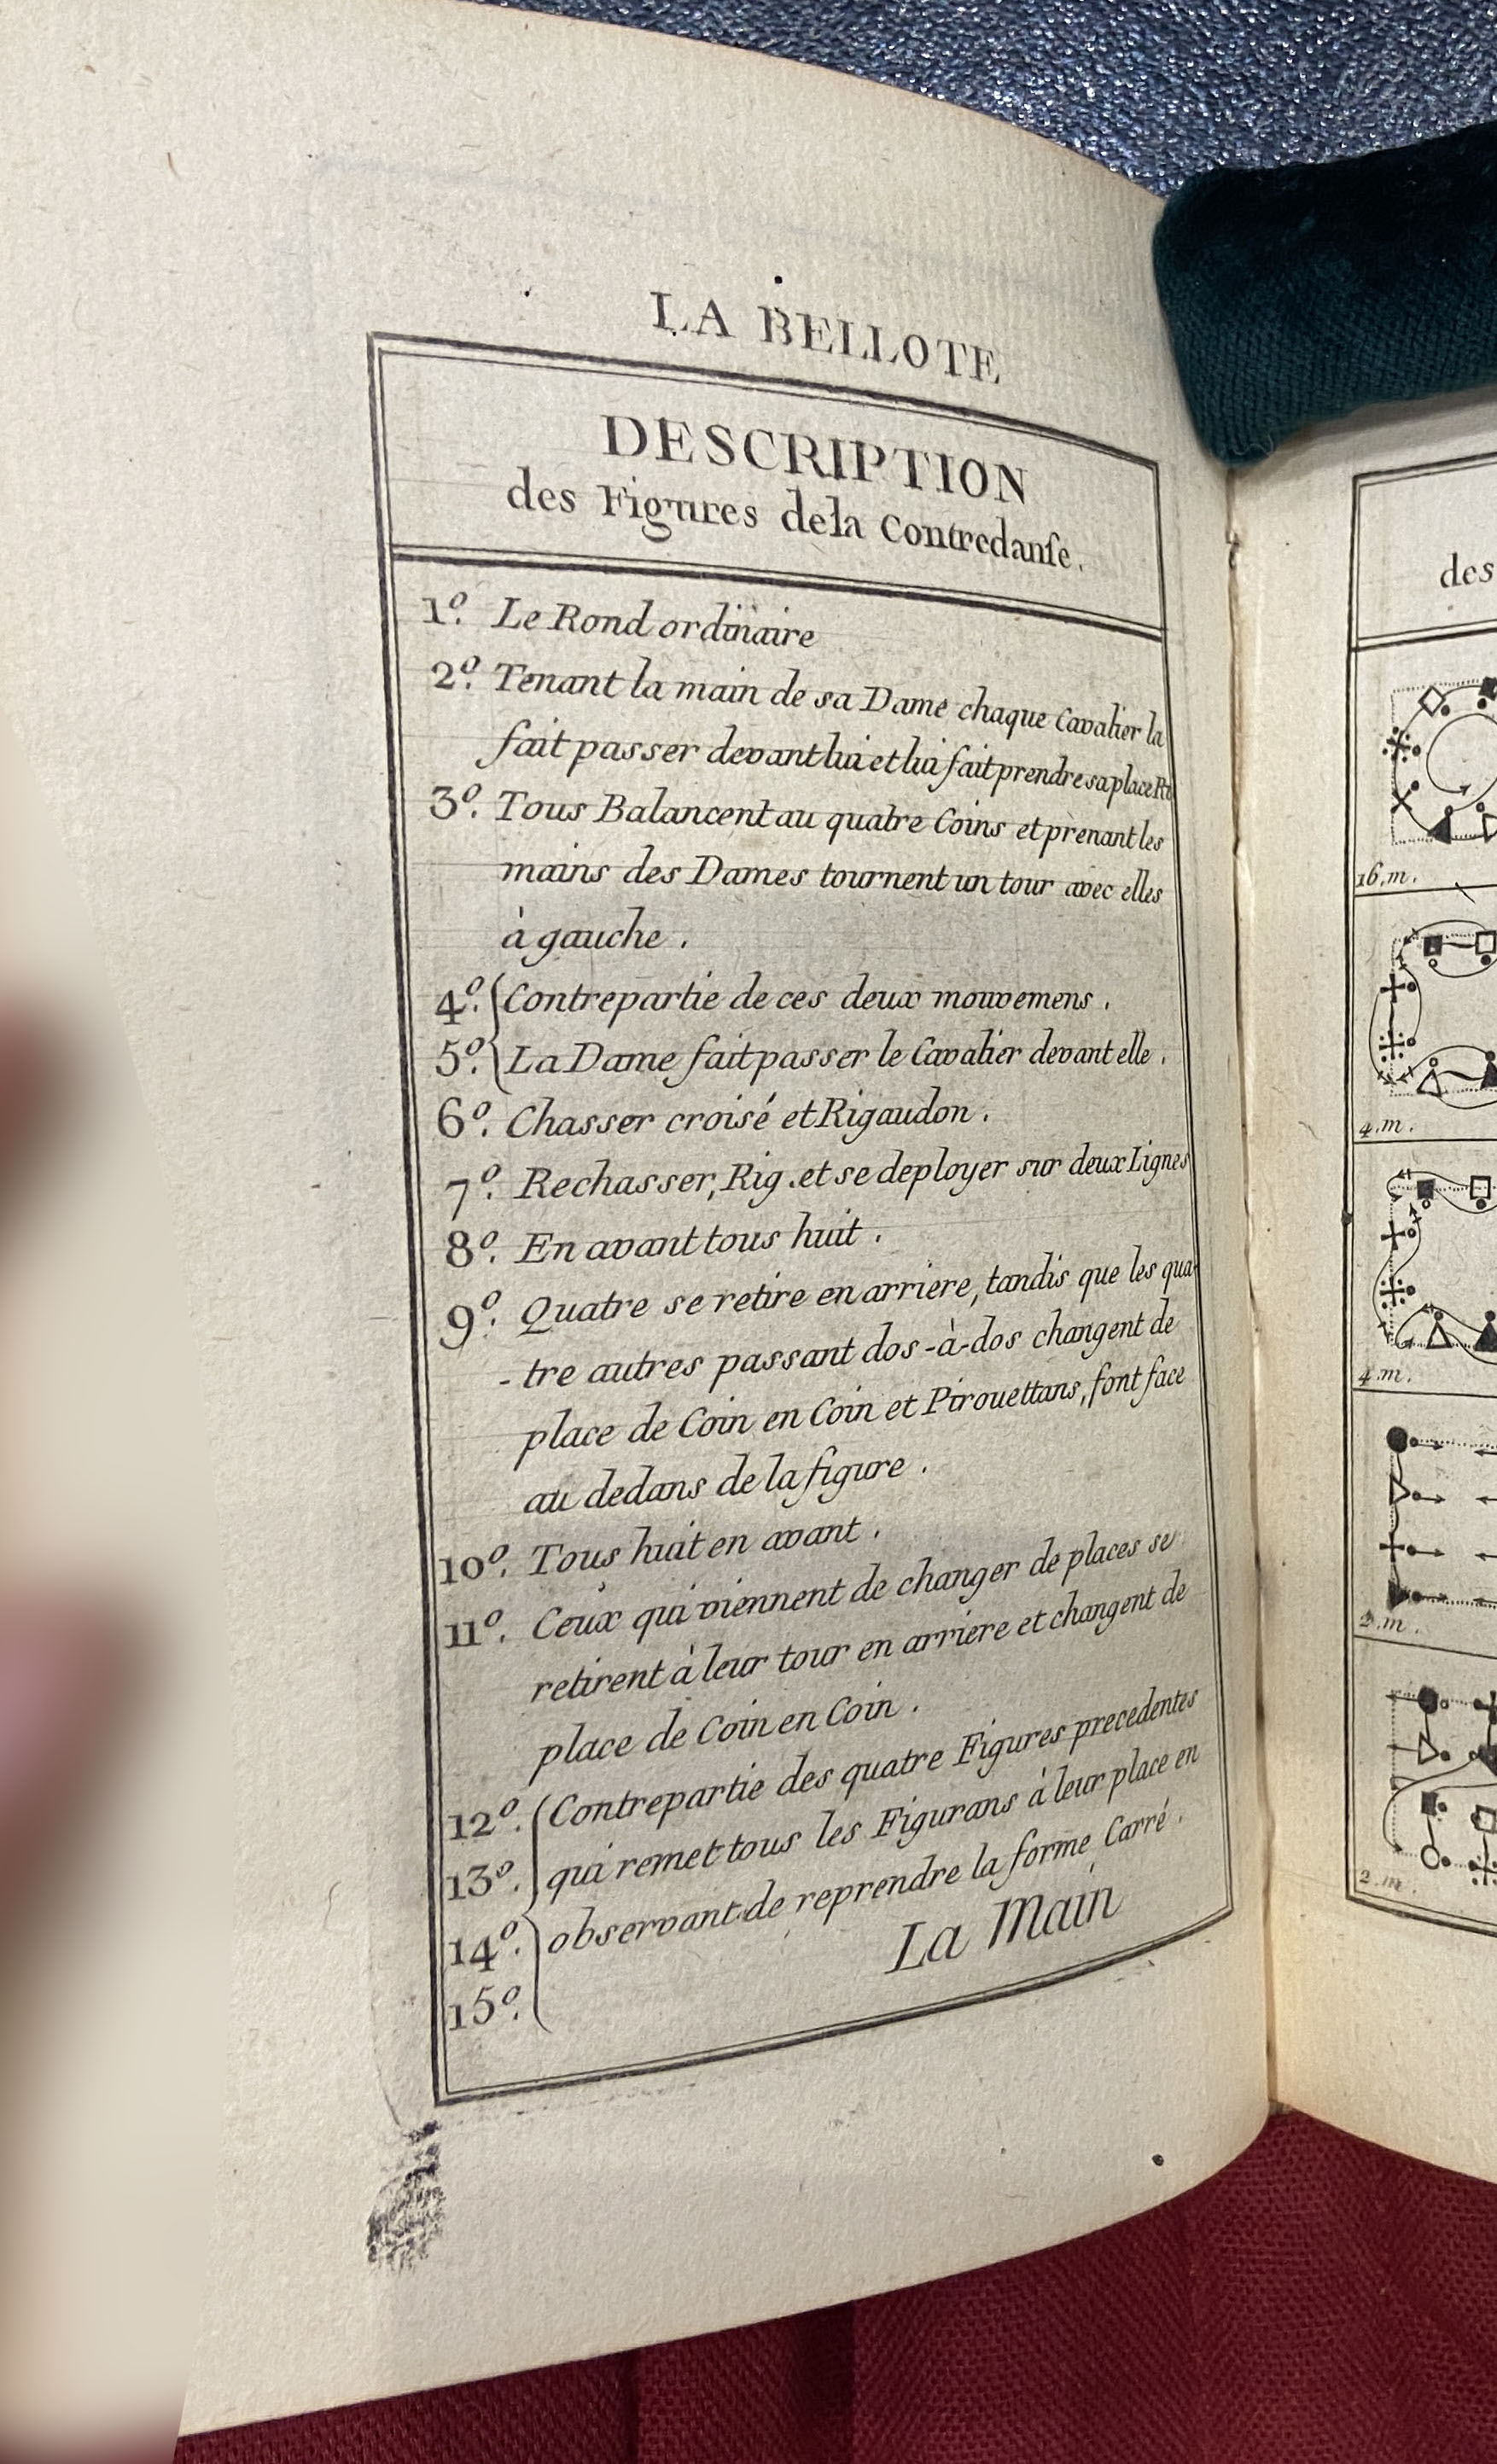 LA BELLOTE
DESCRIPTION
des Figures de la Contredanſe.
1º. Le Rond ordinaire
2º. Tenant la main de sa Dame chaque Cavalier la
fait passer devant lui et lui fait prendre sa place
3º. Tous Balancent au quatre Coins et prenant les
mains des Dames tournent un tour avec elles
à gauche.
4º. Contrepartie de ces deux mouvemens.
5º. La Dame fait passer le Cavalier devant elle.
6º. Chasser croisé et Rigaudon.
7º. Rechasser, Rig. et se deployer sur deux Lignes
8º. En avant tous huit.
9º. Quatre se retire en arriere, tandis que les qua-
-tre autres passant dos-à-dos changent de
place de Coin en Coin et Pirouettans, font face
au dedans de la figure.
10º. Tous huit en avant.
11º. Ceux qui viennent de changer de places se
retirent à leur tour en arriere et changent de
place de Coin en Coin.
12º. Contrepartie des quatre Figures precedentes
13º. qui remet tous les Figurans à leur place en
14º. observant de reprendre la forme Carré.
15º.
La Main
des
16.m.
4.m.
4.m.
2.m.
2.m.